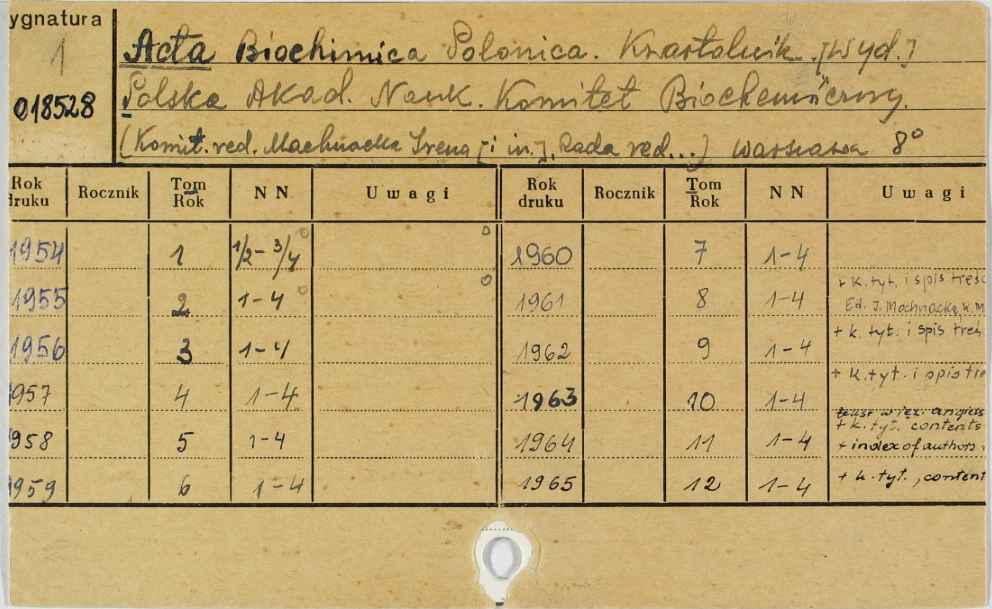 ygnatura
1
018528
Acta Biochimica Polonica. Kwartalnik. [Wyd.]
Polska Akad. Nauk. Komitet Biochemiczny.
(Komit. red. Machnacka Irena [i in.], Rada red...) Warszawa 8°
Rok druku Rocznik Tom Rok NN Uwagi Rok druku Rocznik Tom Rok NN Uwagi
1954 1 1/2-3/4 1960 7 1-4
+ k. tyt. i spis treśc
1955 2 1-4 1961 8 1-4 Ed. I. Mochnacka, W. M
+ k. tyt. i spis treś
1956 3 1-4 1962 9 1-4
+ k. tyt. i spis tre
957 4 1-4 1963 10 1-4
tekst w jęz. angiels
+ k. tyt. contents
958 5 1-4 1964 11 1-4 + index of authors
959 6 1-4 1965 12 1-4 + k. tyt., content